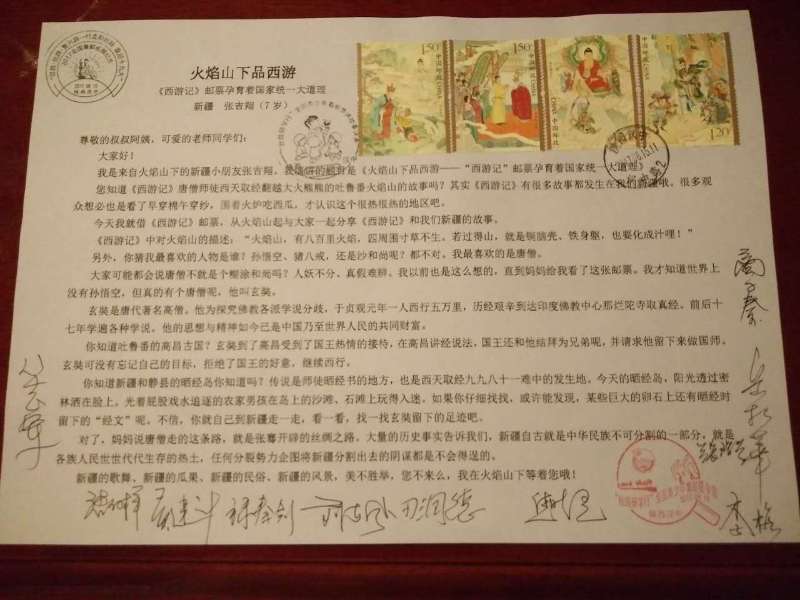 火焰山下品西游
《西游记》邮票孕育着国家统一大道理
新疆 张吉翔（7岁）
1.50元
中国邮政
CHINA
1.50元
中国邮政
CHINA
中国邮政
CHINA
中国邮政
CHINA
1.20元
尊敬的叔叔阿姨，可爱的老师同学们：
大家好！
我是来自火焰山下的新疆小朋友张吉翔。我演讲的题目是《火焰山下品西游——“西游记”邮票孕育着国家统一大道理》
您知道《西游记》唐僧师徒西天取经翻越大火熊熊的吐鲁番火焰山的故事吗？其实《西游记》有很多故事都发生在我们新疆哦。很多观
众想必也是看了早穿棉午穿纱，围着火炉吃西瓜，才认识这个很热很热的地区吧。
今天我就借《西游记》邮票，从火焰山起与大家一起分享《西游记》和我们新疆的故事。
《西游记》中对火焰山的描述：“火焰山，有八百里火焰，四周围寸草不生。若过得山，就是铜脑壳、铁身躯，也要化成汁哩！”
另外，你猜我最喜欢的人物是谁？孙悟空、猪八戒，还是沙和尚呢？都不对。我最喜欢的是唐僧。
大家可能都会说唐僧不就是个糊涂和尚吗？人妖不分、真假难辨。我以前也是这么想的，直到妈妈给我看了这张邮票。我才知道世界上
没有孙悟空，但真的有个唐僧呢，他叫玄奘。
玄奘是唐代著名高僧。他为探究佛教各派学说分歧，于贞观元年一人西行五万里，历经艰辛到达印度佛教中心那烂陀寺取真经。前后十
七年学遍各种学说。他的思想与精神如今已是中国乃至世界人民的共同财富。
你知道吐鲁番的高昌古国？玄奘到了高昌受到了国王热情的接待，在高昌讲经说法，国王还和他结拜为兄弟呢，并请求他留下来做国师。
玄奘可没有忘记自己的目标，拒绝了国王的好意，继续西行。
你知道新疆和静县的晒经岛你知道吗？传说是师徒晒经书的地方，也是西天取经九九八十一难中的发生地。今天的晒经岛，阳光透过密
林洒在脸上。光着屁股戏水追逐的农家男孩在岛上的沙滩、石滩上玩得入迷。如果你仔细找找，或许能发现，某些巨大的卵石上还有晒经时
留下的“经文”呢。不信，你就自己到新疆走一走，看一看，找一找玄奘留下的足迹吧。
对了，妈妈说唐僧走的这条路，就是张骞开辟的丝绸之路。大量的历史事实告诉我们，新疆自古就是中华民族不可分割的一部分，就是
各族人民世世代代生存的热土，任何分裂势力企图将新疆分割出去的阴谋都是不会得逞的。
新疆的歌舞、新疆的瓜果、新疆的民俗、新疆的风景，美不胜举，您不来么，我在火焰山下等着您哦！